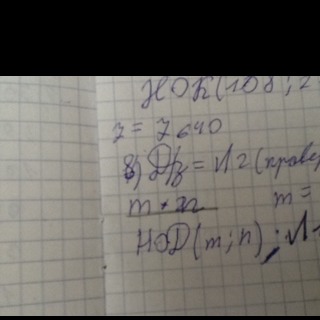 НОК(108; 2
7 = 7640
8) Д/з = №2 (прове
m • n
m =
НОД(m; n) : №1